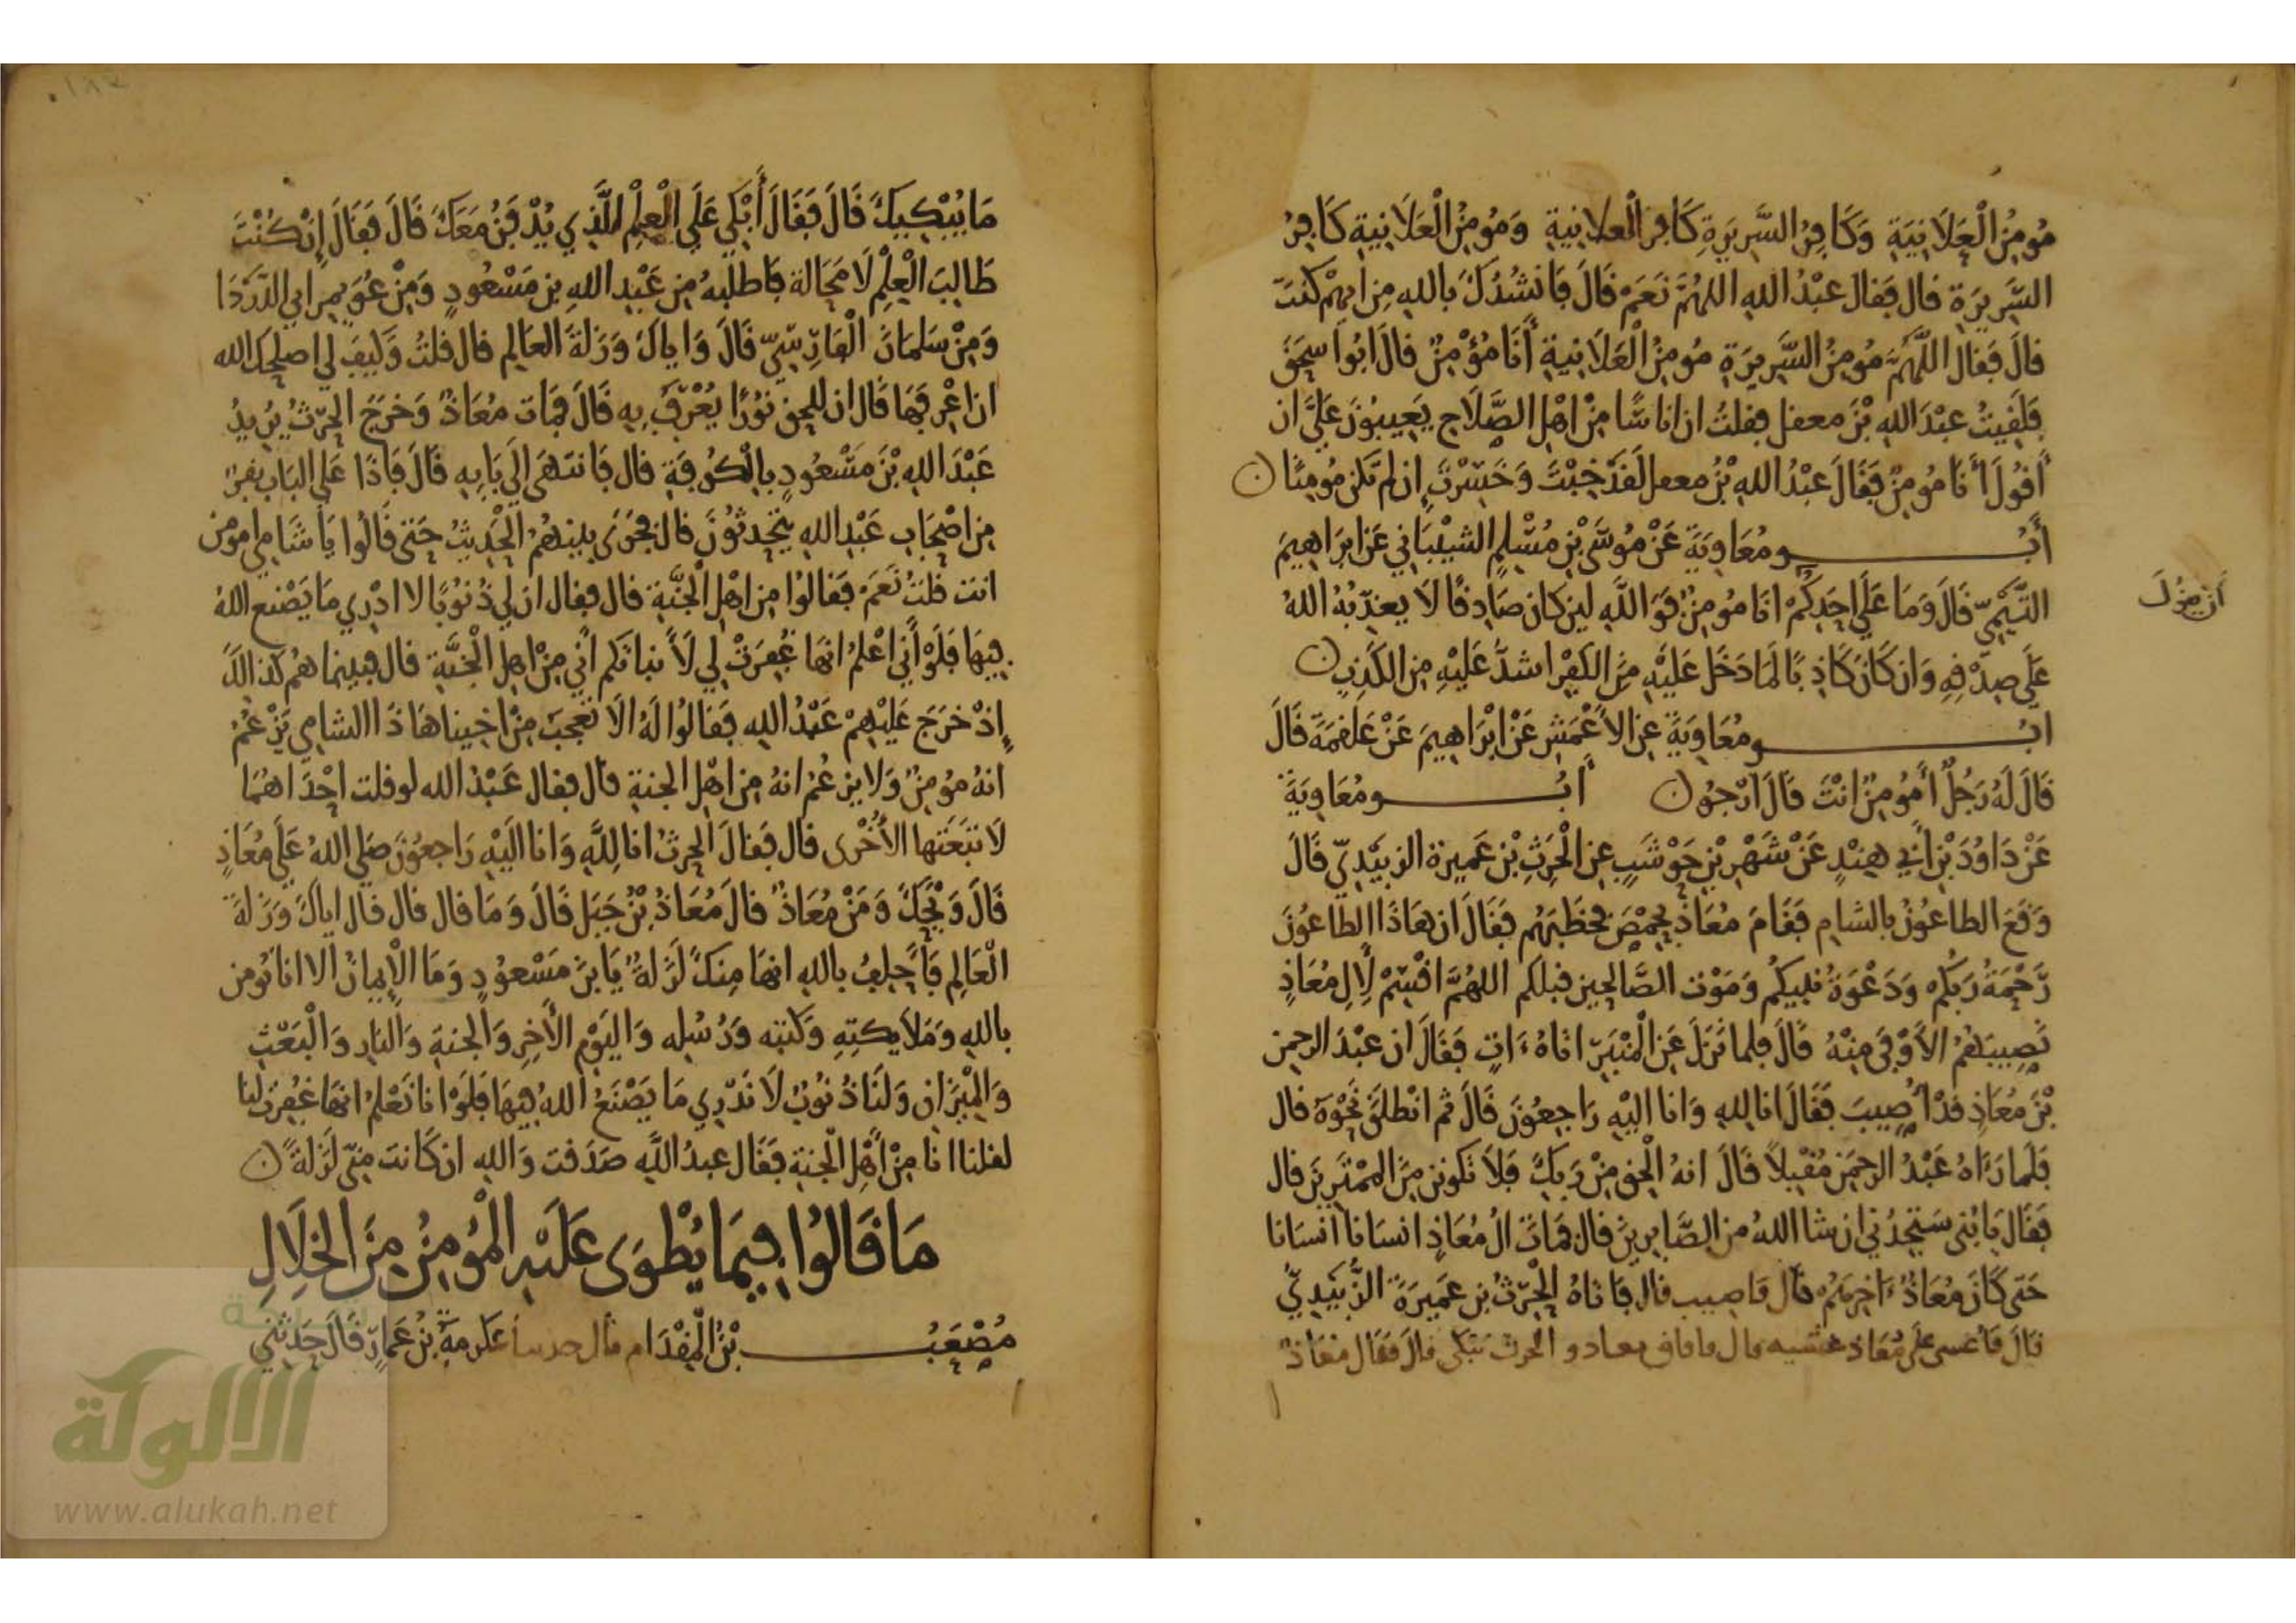 مُومِنُ الْعَلَانِيَةِ وَكَافِرُ السَّرِيرَةِ كَافِرُ الْعلانِيةِ وَمُومِنُ الْعَلَانِيةِ كَافِرُ
السَّرِيرَةِ قال فَقالَ عبْدُ اللهِ اللهُمَّ نَعَمْ قَالَ فَانشُدُكَ باللهِ مِن ايهِمْ كنْتَ
قالَ فَقال اللَّهُمَّ مُومِنُ السَّرِيرَةِ مُومِنُ الْعَلَانِيةِ أَنَا مُؤْمِنٌ قالَ ابُوا سحَقَ
فلَقِيتُ عبْدَ اللهِ بْنَ معقل فقلتُ ان اناسًا مِنْ اهْلِ الصَّلَاحِ يَعِيبُونَ عَلَيَّ ان
أَقُولَ أَنَا مُومِنٌ فَقَالَ عَبْدُ اللهِ بْنُ معقل لَقَدْ خِبْتَ وَخَسِرْتَ إِن لم تَكن مُومِنًا ن
أَبُو مُعَاوِيَةَ عَنْ مُوسَى بْنِ مُسْلِمٍ الشيْبَانِي عَن ابرَاهِيمَ
التَّيْمِيِّ قَالَ وَمَا عَلَى احَدِكُمْ انَا مُومِنٌ فَوَ اللَّهِ لين كان صَادِقًا لَا يعذّبُهُ اللهُ
عَلَى صِدْقِهِ وَان كَانَ كَاذِبًا لَمَا دَخَل عَلَيْهِ مِنَ الكُفْرِ اشدُّ عَلَيْهِ مِن الكَذِبِ ن
ابُو مُعَاوِيَةَ عنِ الأَعْمَشِ عَنْ ابْرَاهِيمَ عَنْ عَلقَمَةَ قَالَ
قَالَ لَهُ رَجُلٌ أَمُومِنٌ انْتَ قَالَ ارْجُو ن أَبُو مُعَاوِيَةَ
عَنْ دَاوُدَ بْنِ أَبِي هِنْدٍ عَنْ شَهْرِ بْنِ حَوْشَبٍ عنِ الْحَرِثِ بْنِ عَمِيرة الزبَيْدِيّ قَالَ
وَقَعَ الطاعُونُ بالشام فَقَامَ مُعَاذٌ بِحِمْصَ فخَطَبَهُم فَقَالَ ان هَاذَا الطاعُونَ
رَحْمَةُ رَبكُم وَدَعْوَةُ نَبِيكُم وَمَوْت الصَّالحِين قبلَكم اللهُمَّ اقْسِمْ لِآلِ مُعَاذٍ
نَصِيبَهُمُ الأَوْفَى مِنْهُ قَالَ فلما نَزَلَ عَن الْمنْبَرِ اتَاهُ ءَاتٍ فَقَالَ ان عَبْدَ الرحمن
بْنَ مُعَاذٍ قدْ أُصِيبَ فَقَالَ انا للهِ وَانا اليْهِ رَاجِعُونَ قَالَ ثم انْطلَقَ نَحْوَهُ قال
فَلَما رَءَاهُ عَبْدُ الرحمن مُقْبِلًا قَالَ انهُ الْحق مِنْ رَبِكَ فَلَا تَكُونن مِنَ الممْتَرِينَ قال
فَقَال يَا بُنَي سَتَجدُنِي ان شا اللهُ من الصَّابِرِينَ قال فمَاتَ الُ مُعَاذٍ انسَانًا انسَانًا
حَتى كَانَ مُعَاذٌ ءَاخِرَهُم قَال فَاصِيب قال فاتَاهُ الْحَرِثُ بْن عَمِيرَةَ الزُّبَيْدِيُّ
قالَ فَأغشى عَلَى مُعَاذ غشْيه قال فافاق معاذ و الحرث يَبْكي قالَ فقَالَ مُعَاذٌ
ان يقُولَ
مَا يُبْكِيكَ قَالَ فَقَالَ أَبْكِي عَلَى الْعِلْمِ الَّذِي يُدْفَنُ مَعَكَ قَالَ فَقَالَ إِنْ كُنْتَ
طَالِبَ الْعِلْمِ لَا مَحَالة فَاطلبْهُ مِن عَبْدِ اللهِ بنِ مَسْعُودٍ وَمِنْ عُوَيمِر ابي الدَّرْدَا
وَمِنْ سَلمَانَ الْفَارِسِيِّ قَالَ وَايَاكَ وَزلَةَ العَالِم قال قلتُ وَكَيفَ لِي اصلحكَ الله
ان اعْرِفَهَا قَال ان للحق نُورًا يُعْرَفُ بِهِ قَالَ فمَات مُعَاذٌ وَخرَجَ الحَرِثُ يُرِيدُ
عَبْدَ اللهِ بْنَ مَسْعُودٍ بِالْكُوفَةِ قال فَانتَهَى إِلَى بَابِهِ قَالَ فَاذَا عَلى البَاب نفَرٌ
مِن اصْحَابِ عَبْدِ اللهِ يَتحَدثُونَ قال فجَرَى بينهُمُ الْحَدِيثُ حَتى قَالُوا يَا شَامِي امومن
انت قلتُ نَعَمْ فقَالُوا مِن اهْلِ الْجَنَّةِ قال فقال ان لِي ذُنُوبًا لا ادْرِي مَا يَصْنع اللهُ
فِيهَا فَلَوْ أَنِي اعْلَمُ انهَا غُفِرَتْ لِي لَأَنباتكم أَنِي مِنْ اهلِ الْجَنَّةِ قال فبينما هُم كذالكَ
إِذْ خرَجَ عَلَيْهِمْ عَبْدُ اللهِ فَقَالُوا لَهُ الَا تَعجَبَ مِنْ اخِينا هَاذَا الشامِي يَزْعُمُ
انهُ مُومِنٌ وَلا يزعُمُ انهُ مِن اهْلِ الجنةِ قال فقال عَبْدُ الله لو قلت احْدَاهُمَا
لَاتبَعَتْها الأُخْرى قال فَقالَ الحرِثُ انا لِلَّهِ وَانا الَيْهِ رَاجعُونَ صَلى اللهُ عَلَى مُعَاذٍ
قَالَ وَيْحَكَ وَمَنْ مُعَاذٌ قالَ مُعَاذُ بْنُ جَبَلٍ قَالَ وَمَا قال قال قال اياكَ وَزلةَ
الْعَالِمِ فَأَحْلِفُ باللهِ انهَا مِنكَ لَزَلةٌ يَابنَ مَسْعُودٍ وَمَا الْإِيمانُ الا انا نُومن
باللهِ وَمَلَايِكتِهِ وَكتبه وَرُسُلِه وَاليَوْمِ الْأَخِرِ وَالجنةِ وَالنارِ وَالْبَعْثِ
وَالْمِيزَانِ وَلَنَا ذُنُوبٌ لَا نَدْرِي مَا يَصْنَعُ اللهُ فِيهَا فَلَوْ انا نَعْلمُ انهَا غُفِرَت لَنا
لقلنا انا مِنْ أَهْلِ الْجَنةِ فَقَال عبدُ اللَّهِ صَدَقت وَاللهِ ان كَانت مِنِّي لَزلةً ن
مَا قَالُوا فِيمَا يُطْوَى عَلَيْهِ الْمُؤمِنُ مِنَ الخِلَالِ
مُصْعَبُ بْنُ الْمِقْدَامِ قال حدثنا عكرمة بْنُ عَمارٍ قَالَ حَدثنِي
الألوكة
www.alukah.net